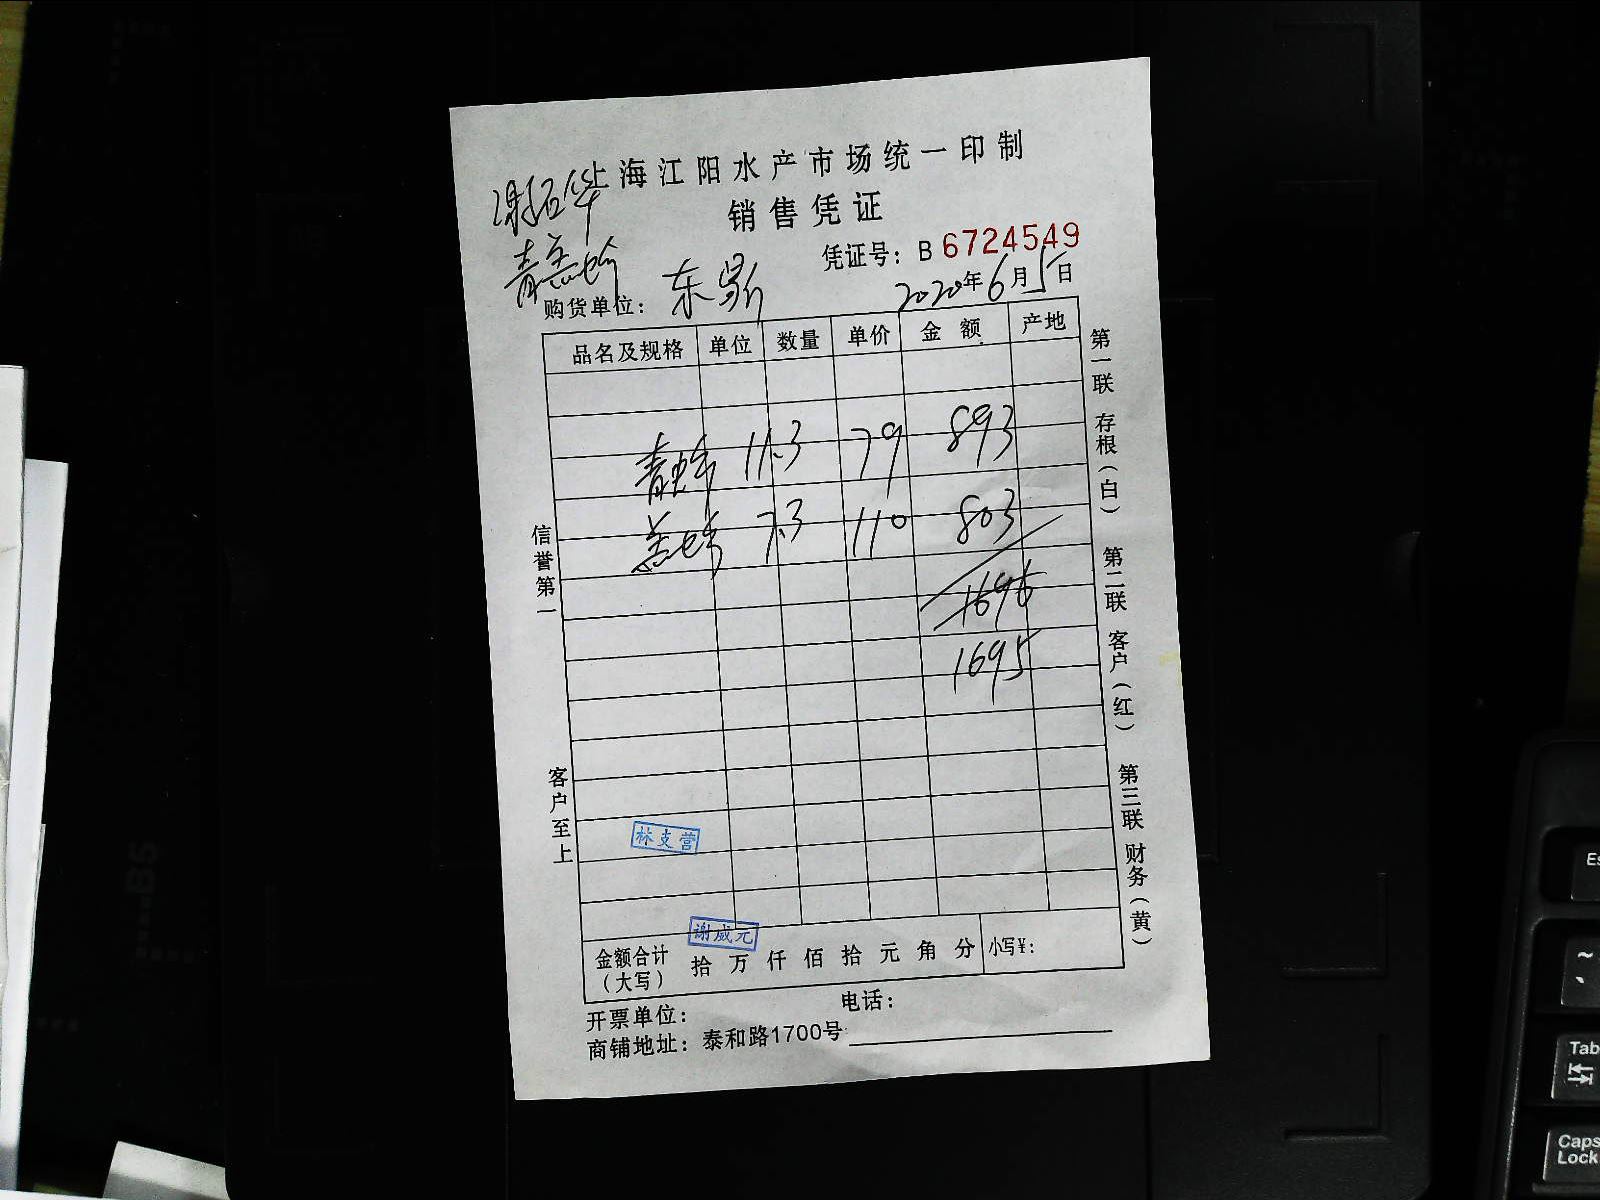 上海江阳水产市场统一印制
销售凭证
谢石华
青羔蛤
凭证号：B 6724549
购货单位：东鼎
2020年6月5日
品名及规格 单位 数量 单价 金额 产地
青 11.3 79 893
羔 7.3 110 803
1696
1695
信誉第一
客户至上
第一联 存根（白）
第二联 客户（红）
第三联 财务（黄）
林支营
谢成元
金额合计（大写） 拾 万 仟 佰 拾 元 角 分 小写¥：
开票单位： 电话：
商铺地址：泰和路1700号
B5
Es
~
Tab
Caps
Lock